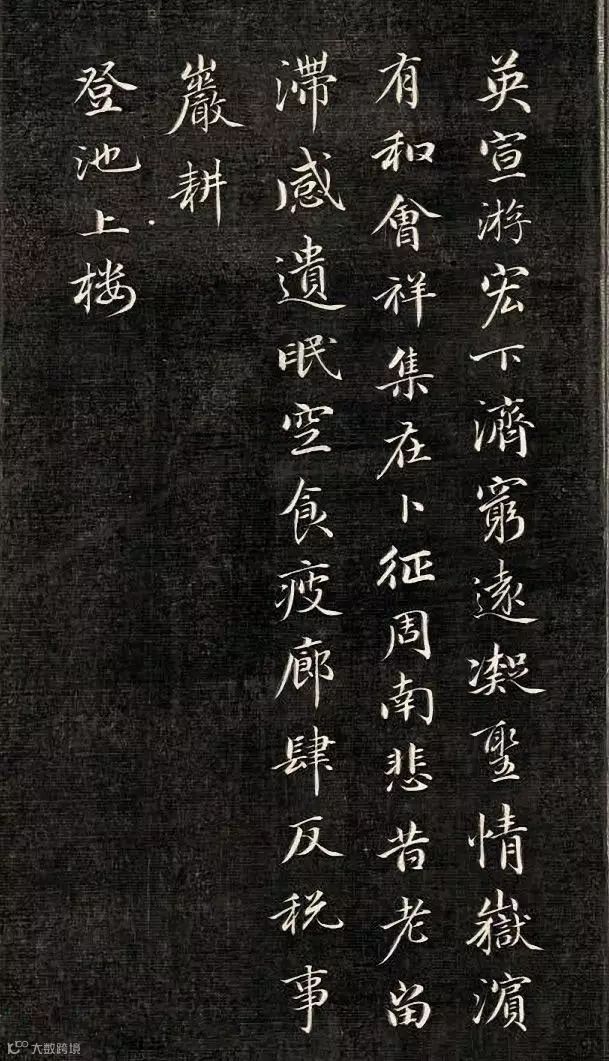 英宣游宏下濟窮遠凝聖情嶽濱
有和會祥集在卜征周南悲昔老留
滯感遺眠空食疲廊肆反税事
巖耕
登池上楼
大数跨境